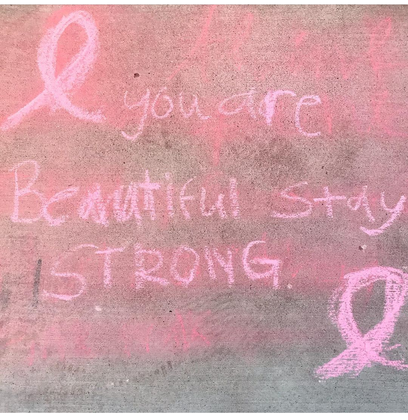 you are
Beautiful Stay
STRONG.